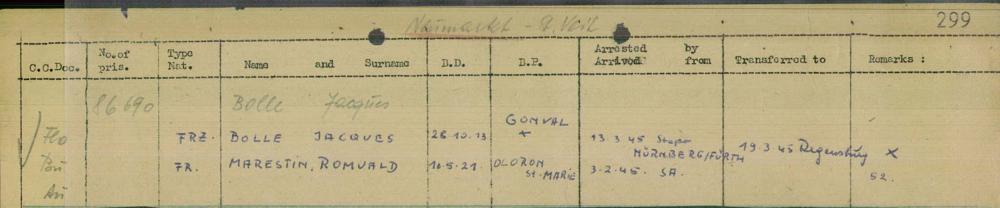 299
Neumarkt - St. Veit
C.C.Doc. No.of pris. Type Nat. Name and Surname B.D. B.P. Arrested Arrived by from Transferred to Remarks :
86690 Bolle Jacques
Flo FRZ. BOLLE JACQUES 26.10.13 GONVAL + 13.3.45 Stapo NÜRNBERG/FÜRTH 19.3.45 Regensburg X
FR. MARESTIN, ROMUALD 10.5.21 OLORON St. MARIE 3.2.45. SA. 52.